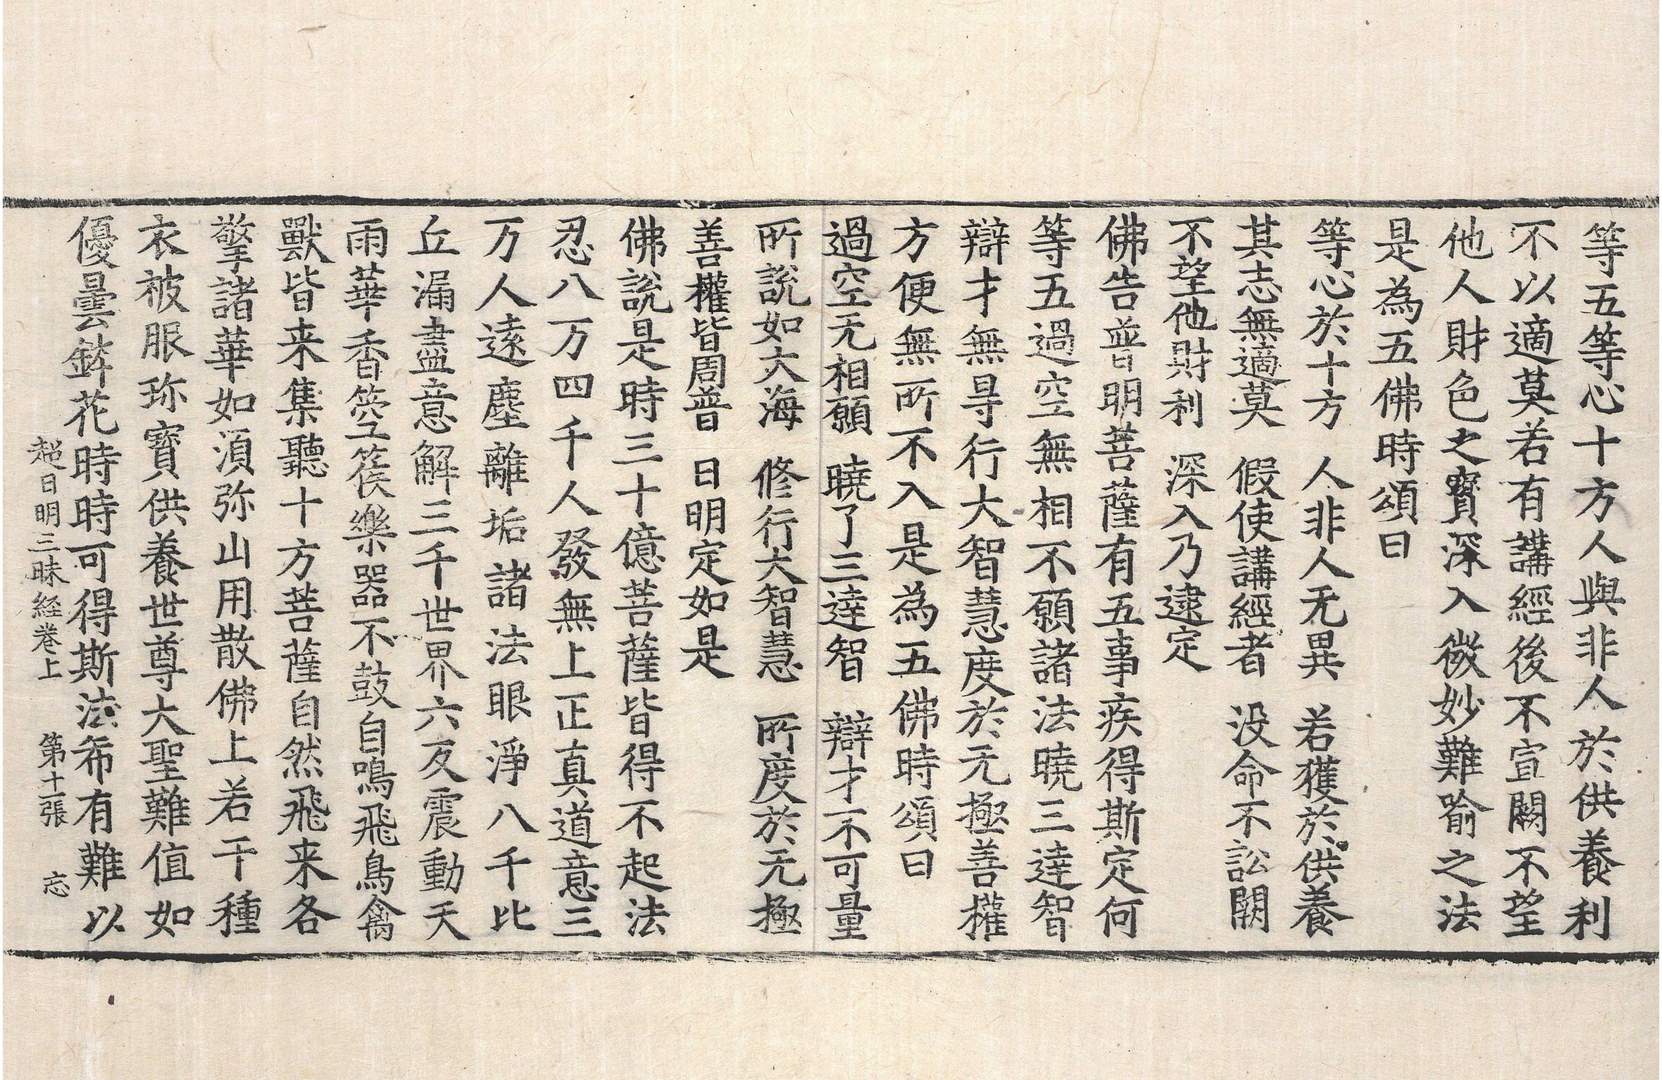 等五等心十方人與非人於供養利
不以適莫若有講經後不宣闕不望
他人財色之寶深入微妙難喻之法
是為五佛時頌曰
等心於十方　人非人无異　若獲於供養
其志無適莫　假使講經者　没命不訟闕
不望他財利　深入乃逮定
佛告普明菩薩有五事疾得斯定何
等五過空無相不願諸法曉三達智
辯才無㝵行大智慧度於无極善權
方便無所不入是為五佛時頌曰
過空无相願　曉了三達智　辯才不可量
所說如大海　修行大智慧　所度於无極
善權皆周普　日明定如是
佛說是時三十億菩薩皆得不起法
忍八万四千人發無上正真道意三
万人遠塵離垢諸法眼淨八千比
丘漏盡意解三千世界六反震動天
雨華香箜篌樂器不鼓自鳴飛鳥禽
獸皆来集聽十方菩薩自然飛来各
擎諸華如湏弥山用散佛上若干種
衣被服珎寶供養世尊大聖難值如
優曇鉢花時時可得斯法希有難以
超日明三昧経卷上　第十一張　忘